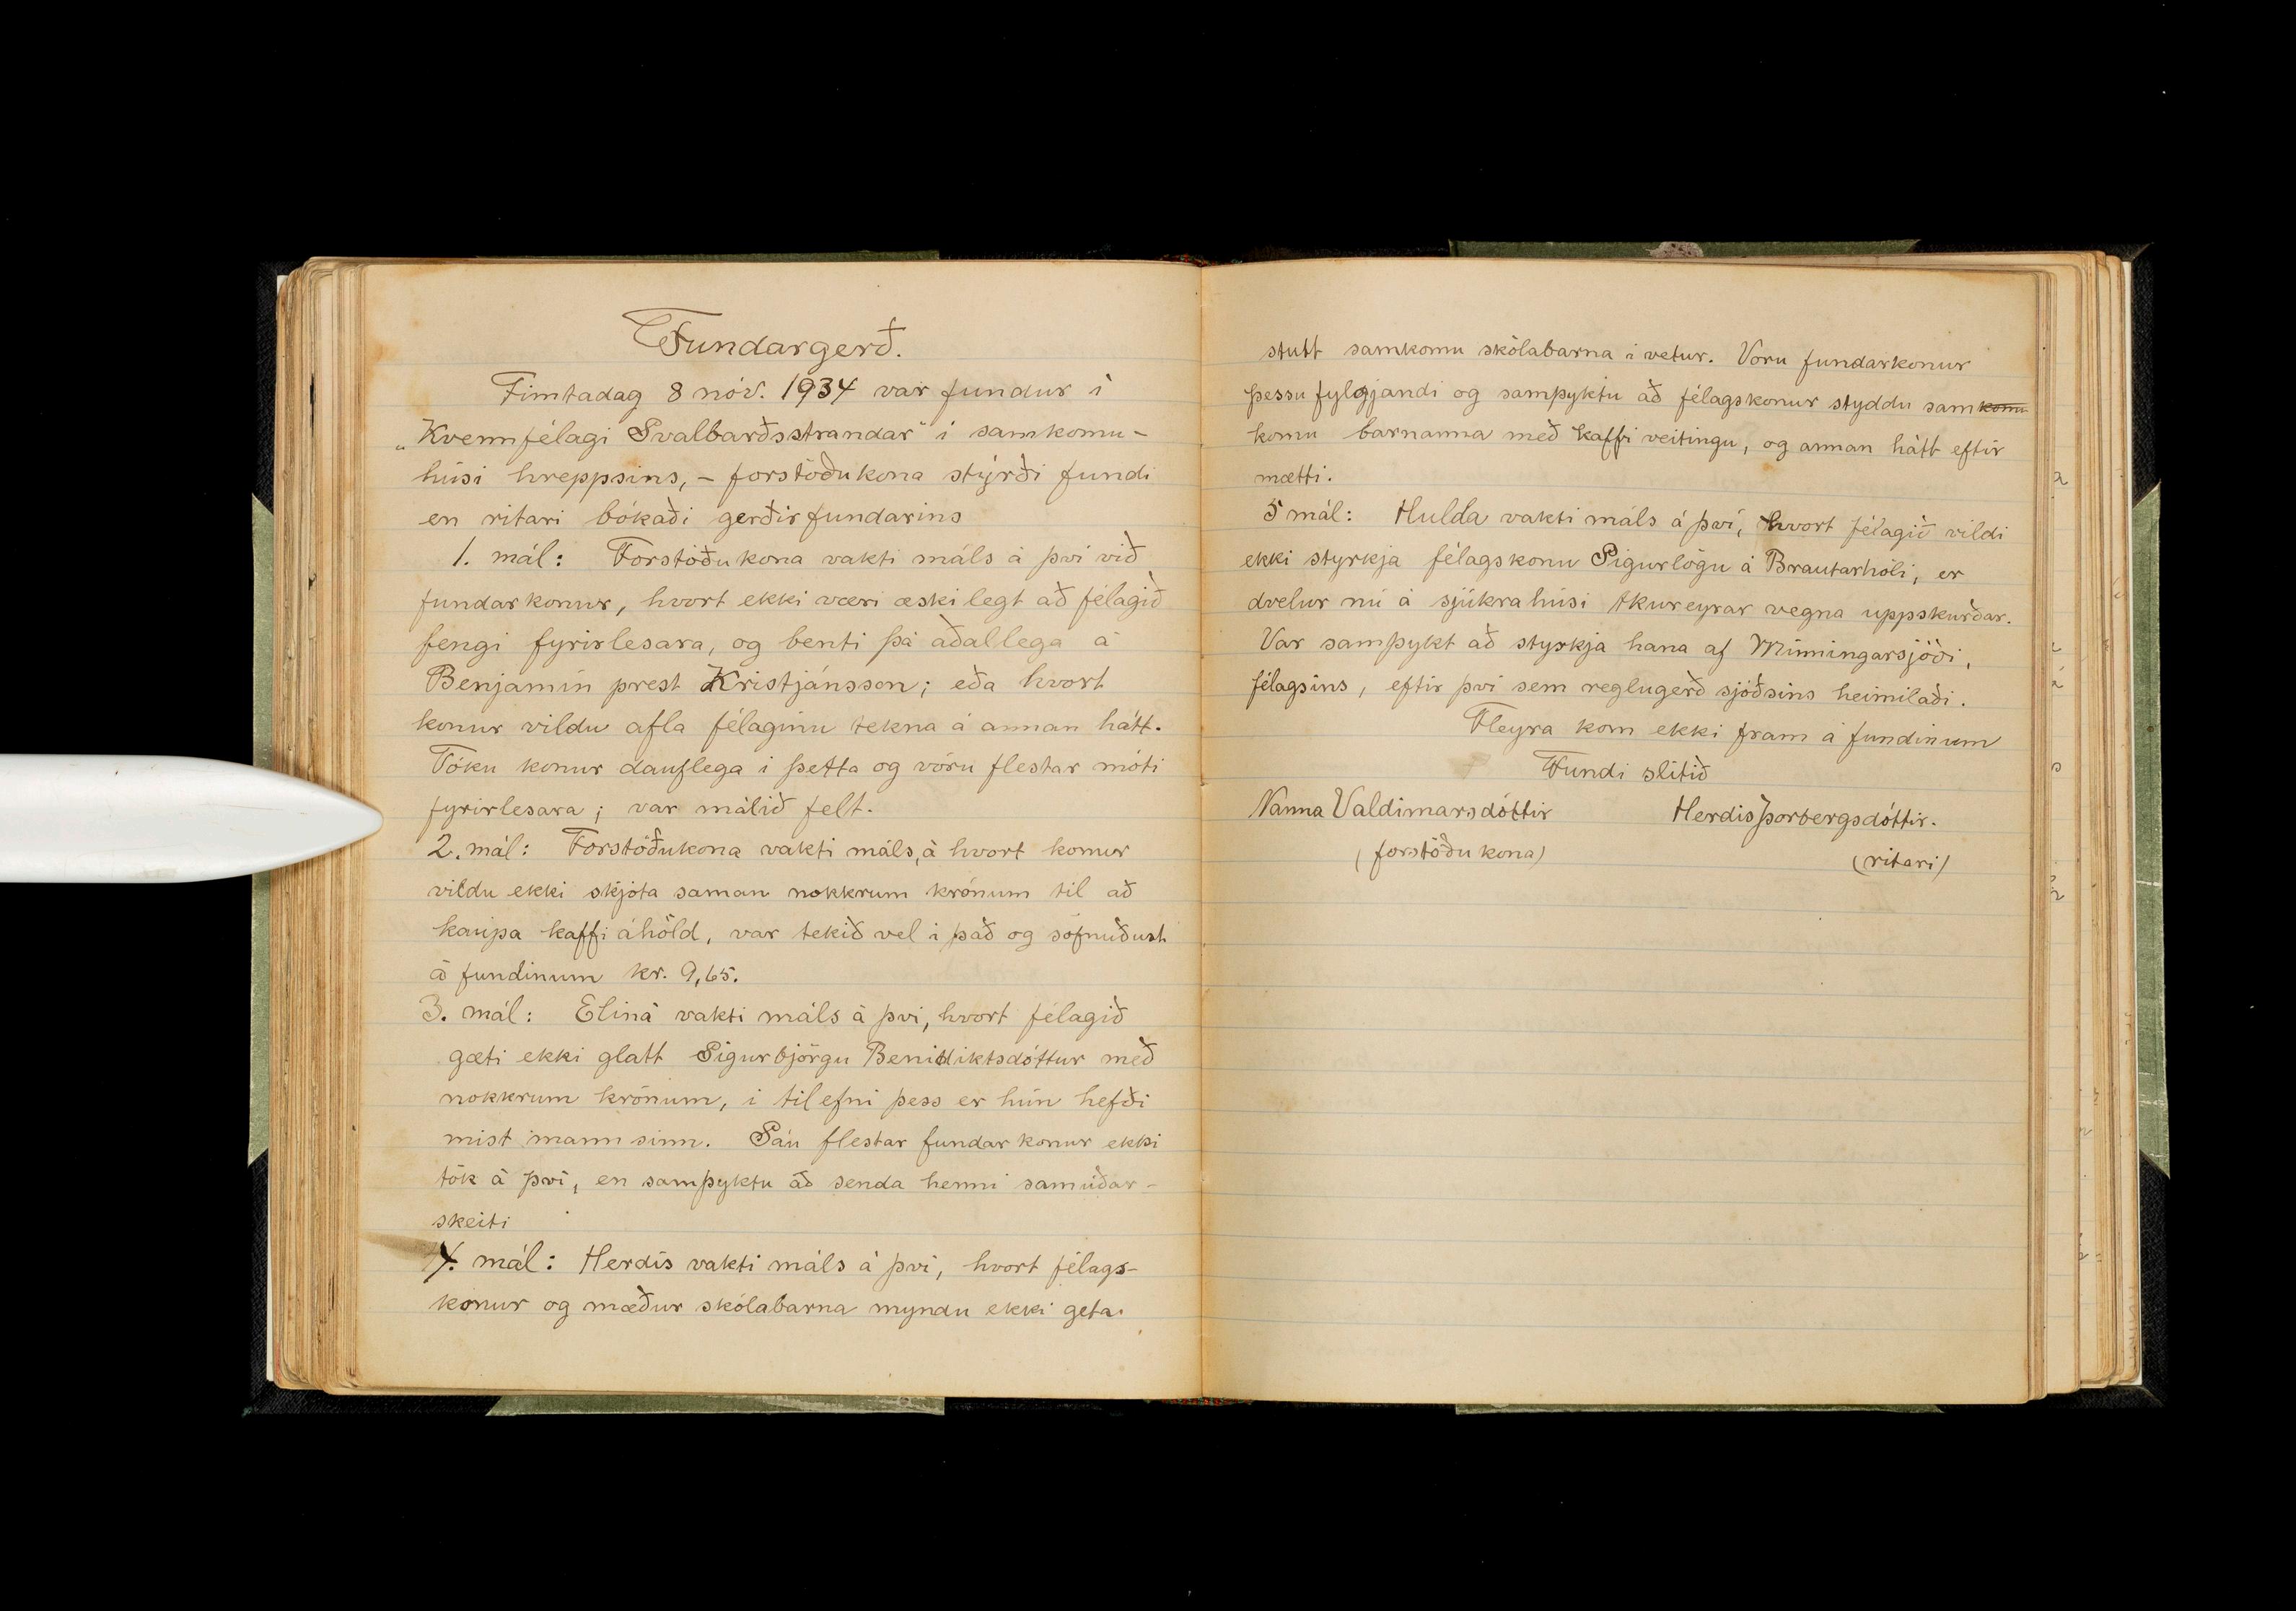 Fundargerð.
Fimtadag 8 nóv. 1934 var fundur í
„Kvennfélagi Svalbarðsstrandar" í samkomu-
húsi hreppsins, - forstöðukona stýrði fundi
en ritari bókaði gerðir fundarins
1. mál: Forstöðukona vakti máls á því við
fundarkonur, hvort ekki væri æskilegt að félagið
fengi fyrirlesara, og benti þá aðallega á
Benjamín prest Kristjánsson; eða hvort
konur vildu afla félaginu tekna á annan hátt.
Tóku konur dauflega í þetta og vóru flestar móti
fyrirlesara; var málið felt.
2. mál: Forstöðukona vakti máls, á hvort konur
vildu ekki skjóta saman nokkrum krónum til að
kaupa kaffi áhöld, var tekið vel í það og söfnuðust
á fundinum kr. 9,65.
3. mál: Elína vakti máls á því, hvort félagið
gæti ekki glatt Sigurbjörgu Benidiktsdóttur með
nokkrum krónum, í tilefni þess er hún hefði
mist mann sinn. Sáu flestar fundarkonur ekki
tök á því, en samþyktu að senda henni samúðar-
skeiti
4. mál: Herdís vakti máls á því, hvort félags-
konur og mæður skólabarna myndu ekki geta
stutt samkomu skólabarna í vetur. Voru fundarkonur
þessu fylgjandi og samþyktu að félagskonur styddu samkomu
komu barnanna með kaffi veitingu, og annan hátt eftir
mætti.
5 mál: Hulda vakti máls á því, hvort félagið vildi
ekki styrkja félagskonu Sigurlögu á Brautarhóli, er
dvelur nú á sjúkrahúsi Akureyrar vegna uppskurðar.
Var samþykt að styrkja hana af Minningarsjóði,
félagsins, eftir því sem reglugerð sjóðsins heimilaði.
Fleyra kom ekki fram á fundinum
Fundi slitið
Nanna Valdimarsdóttir Herdís Þorbergsdóttir.
(forstöðukona) (ritari)